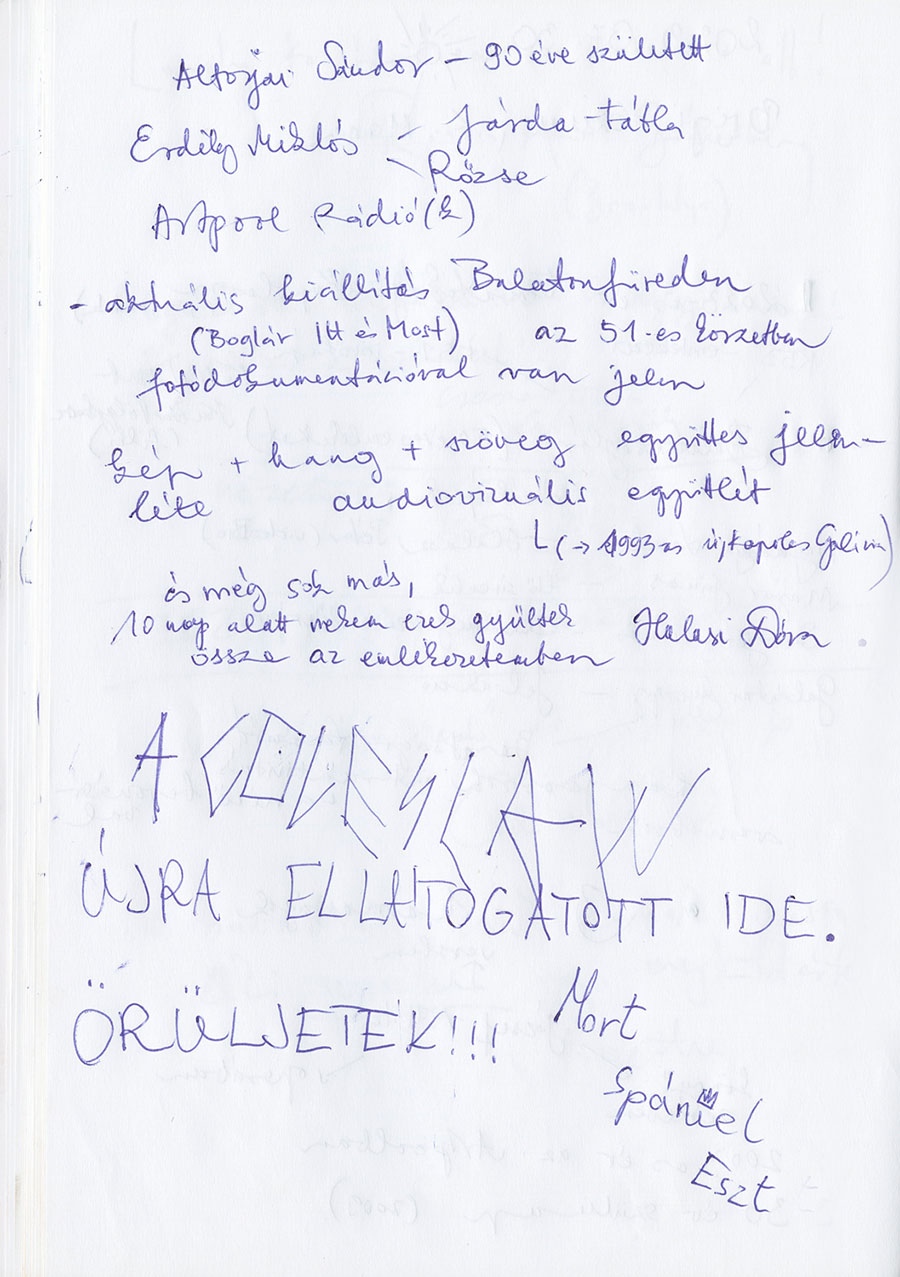 Altorjai Sándor – 90 éve született
Erdély Miklós – Járda-tábla
Rőzse
Artpool Rádió(k)
– aktuális kiállítás Balatonfüreden
(Boglár Itt és Most) az 51-es körzetben
fotódokumentációval van jelen
kép + hang + szöveg együttes jelen–
léte audiovizuális együttlét
(→ 1993-as Galéria)
és még sok más,
10 nap alatt nekem ezek gyűltek Halasi Dóra
össze az emlékezetemben
A COLESLAW
ÚJRA ELLÁTOGATOTT IDE.
ÖRÜLJETEK!!!
Mort
Spániel
Eszt